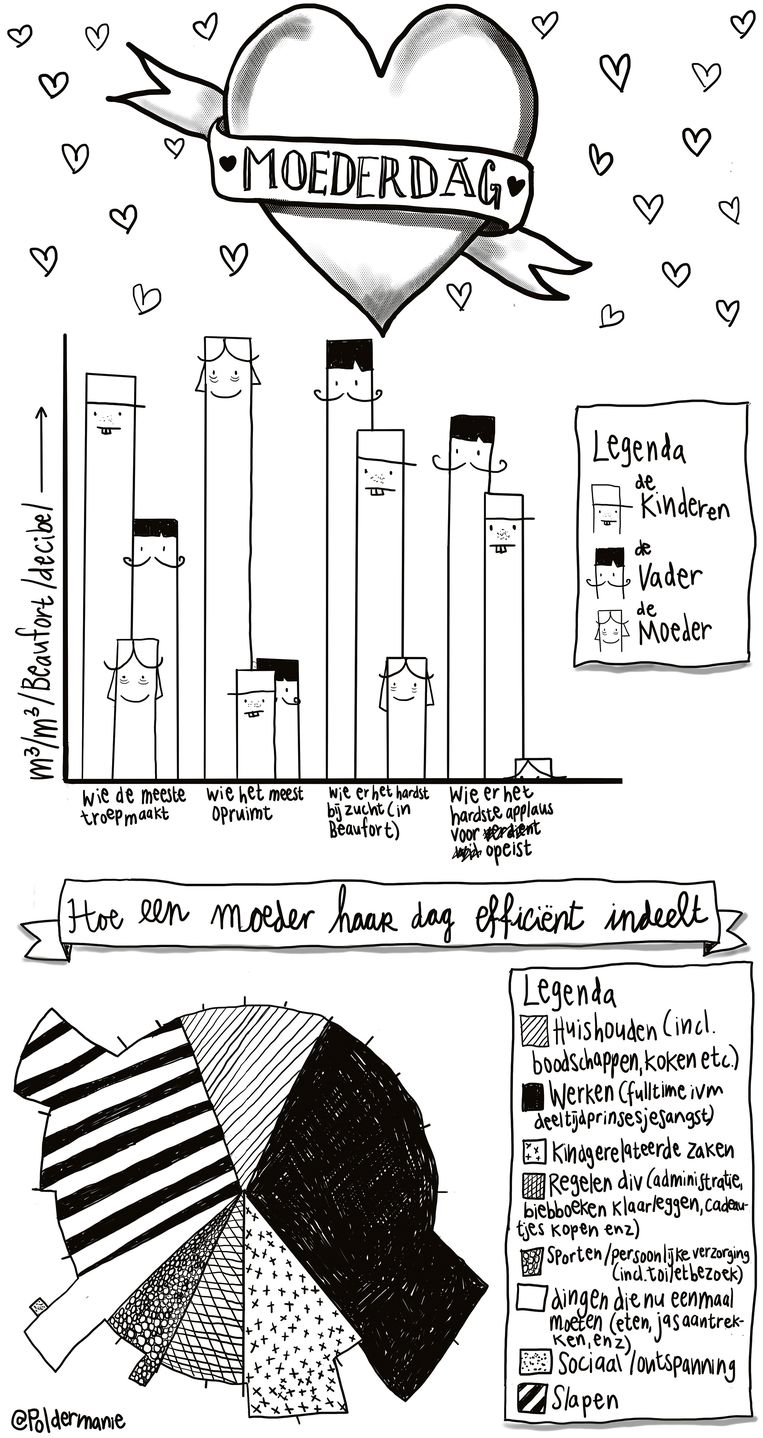 MOEDERDAG
m³/m³/Beaufort/decibel
Legenda
de
Kinderen
de
Vader
de
Moeder
wie de meeste
troep maakt
wie het meest
opruimt
wie er het hardst
bij zucht (in
Beaufort)
Wie er het
hardste applaus
voor verdient
opeist
Hoe een moeder haar dag efficiënt indeelt
Legenda
Huishouden (incl.
boodschappen, koken etc.)
Werken (fulltime ivm
deeltijdprinsesjesangst)
Kindgerelateerde zaken
Regelen div (administratie,
biebboeken klaarleggen, cadeau-
tjes kopen enz)
Sporten/persoonlijke verzorging
(incl. toiletbezoek)
dingen die nu eenmaal
moeten (eten, jas aantrek-
ken, enz)
Sociaal/ontspanning
Slapen
@Poldermanie